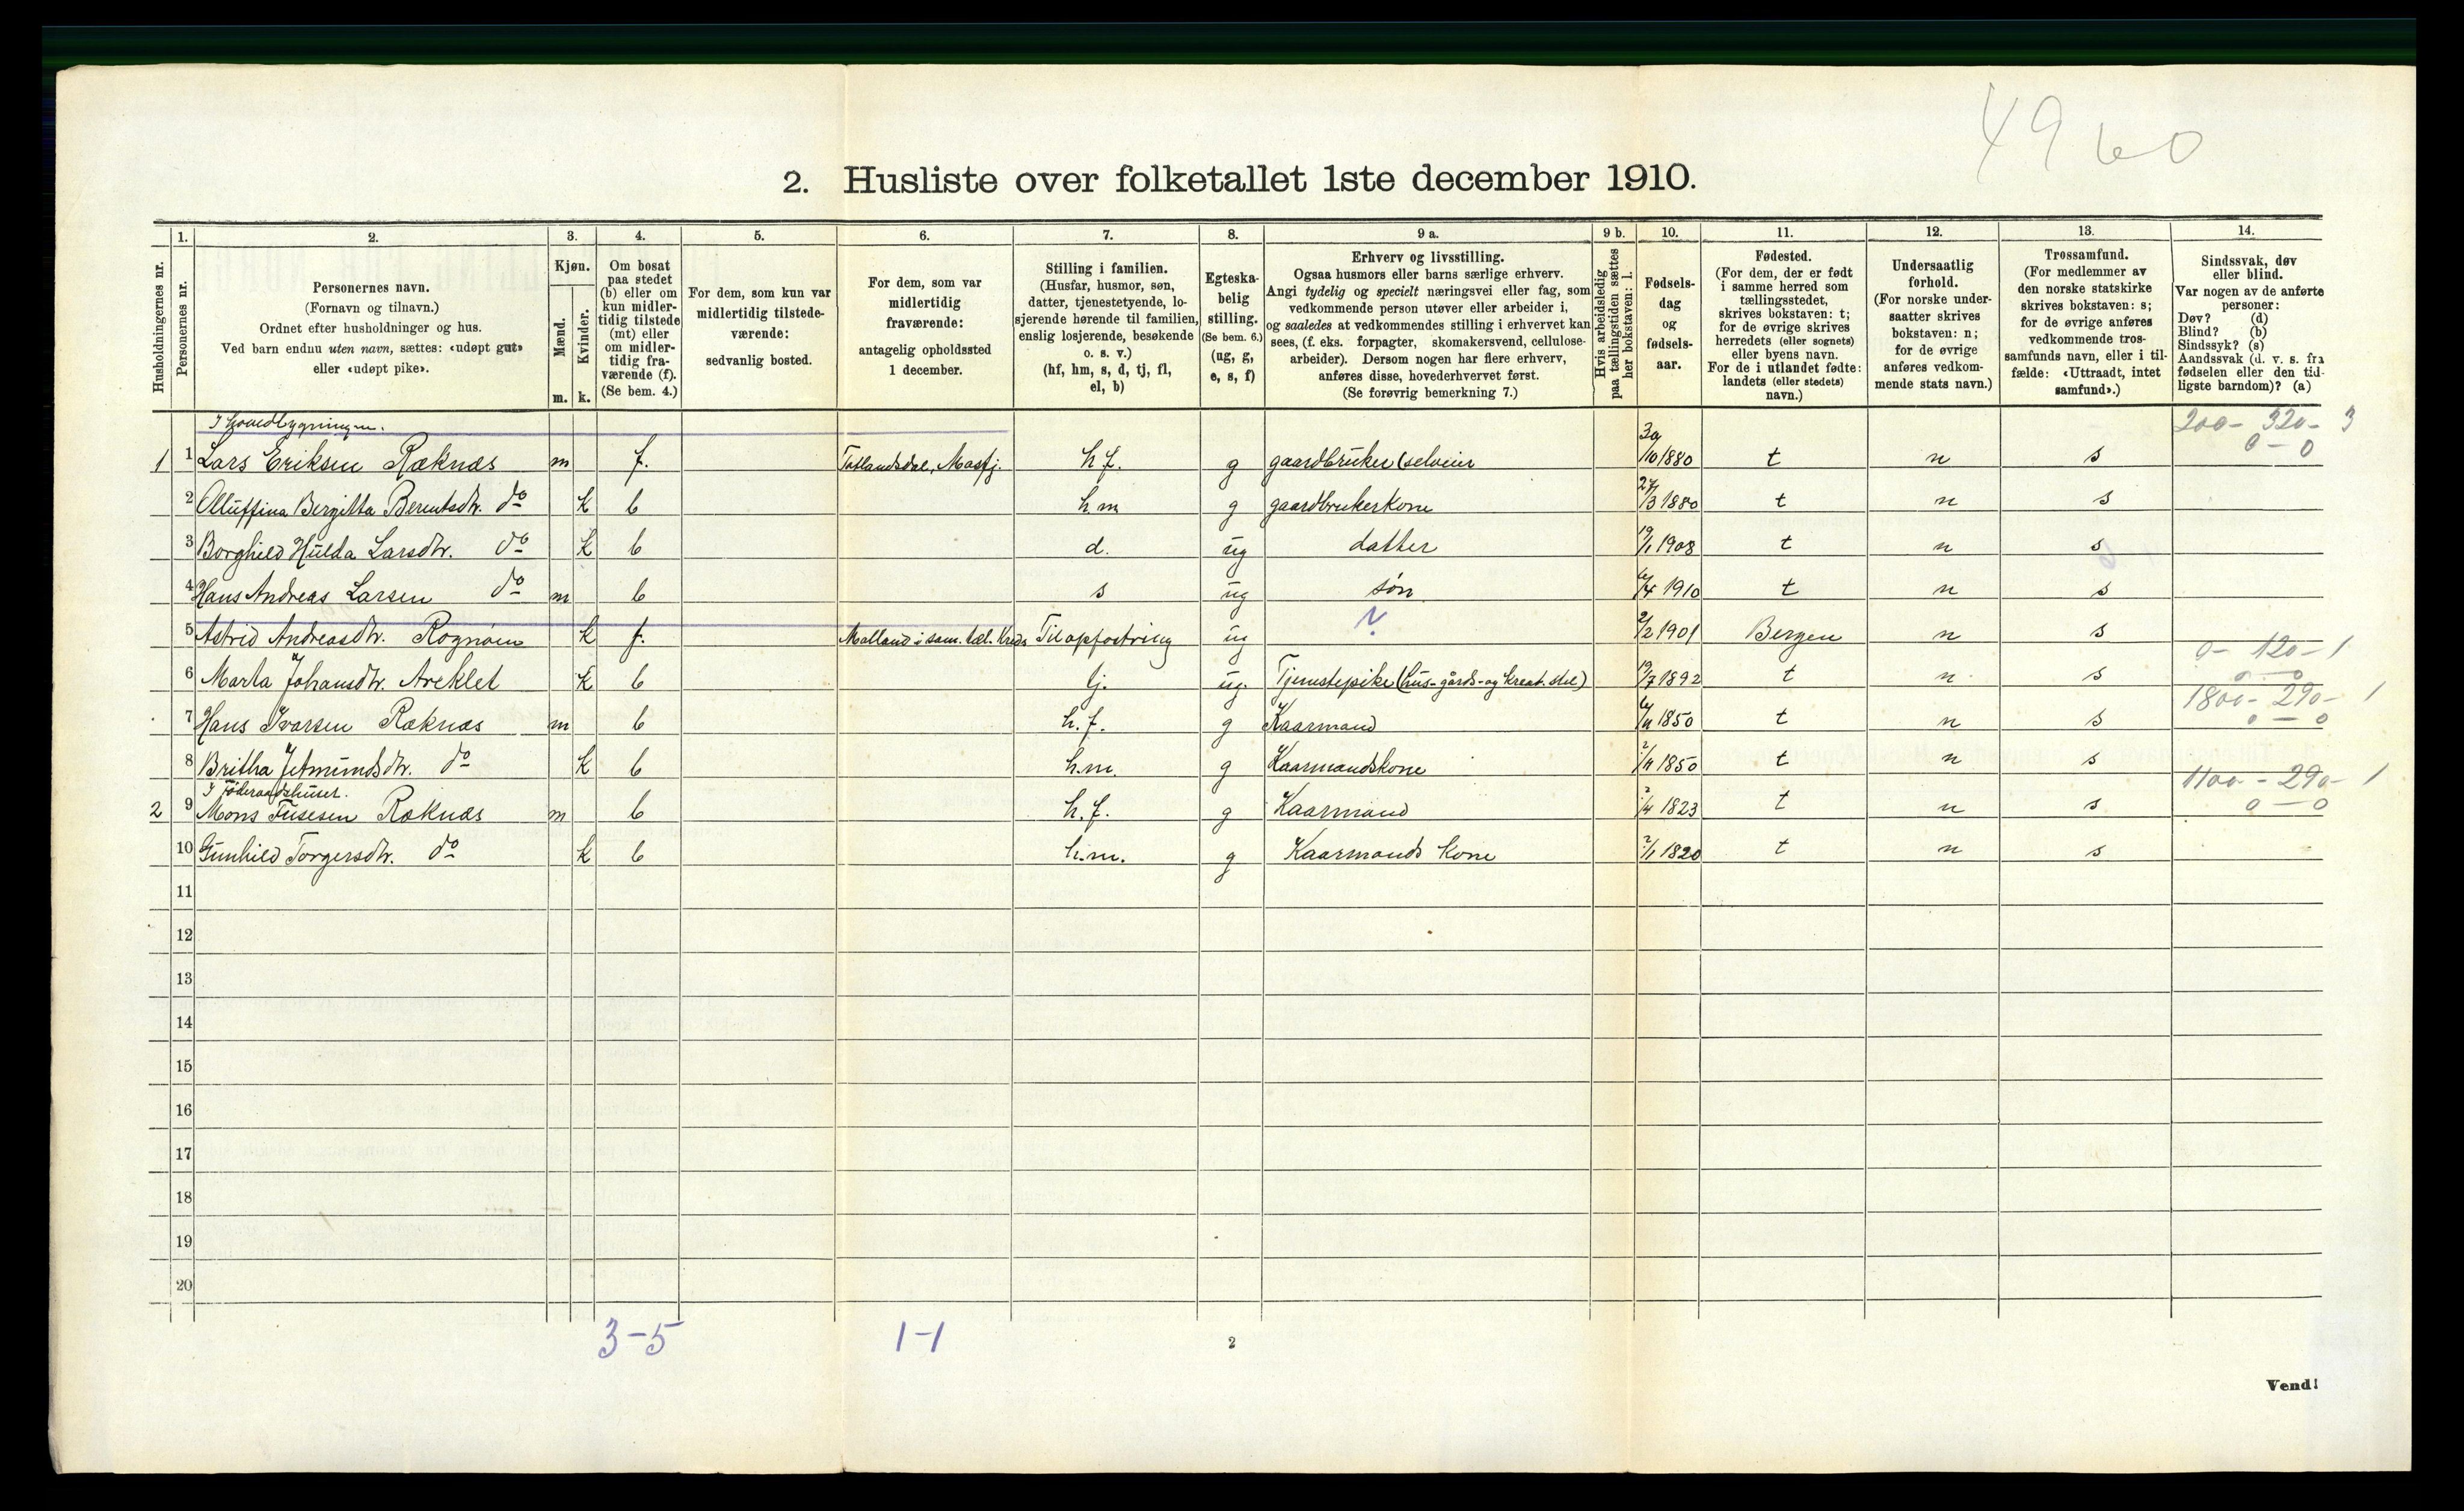 4960
2. Husliste over folketallet 1ste december 1910.
Husholdningernes nr.
1.
Personernes nr.
2.
Personernes navn.
(Fornavn og tilnavn.)
Ordnet efter husholdninger og hus.
Ved barn endnu uten navn, sættes: «udøpt gut»
eller «udøpt pike».
3.
Kjøn.
Mænd.
Kvinder.
m. k.
4.
Om bosat
paa stedet
(b) eller om
kun midler-
tidig tilstede
(mt) eller
om midler-
tidig fra-
værende (f).
(Se bem. 4.)
5.
For dem, som kun var
midlertidig tilstede-
værende:
sedvanlig bosted.
6.
For dem, som var
midlertidig
fraværende:
antagelig opholdssted
1 december.
7.
Stilling i familien.
(Husfar, husmor, søn,
datter, tjenestetyende, lo-
sjerende hørende til familien,
enslig losjerende, besøkende
o. s. v.)
(hf, hm, s, d, tj, fl,
el, b)
8.
Egteska-
belig
stilling.
(Se bem. 6.)
(ug, g,
e, s, f)
9 a.
Erhverv og livsstilling.
Ogsaa husmors eller barns særlige erhverv.
Angi tydelig og specielt næringsvei eller fag, som
vedkommende person utøver eller arbeider i,
og saaledes at vedkommendes stilling i erhvervet kan
sees, (f. eks. forpagter, skomakersvend, cellulose-
arbeider). Dersom nogen har flere erhverv,
anføres disse, hovederhvervet først.
(Se forøvrig bemerkning 7.)
9 b.
Hvis arbeidsledig
paa tællingstiden sættes
her bokstaven: l.
10.
Fødsels-
dag
og
fødsels-
aar.
11.
Fødested.
(For dem, der er født
i samme herred som
tællingsstedet,
skrives bokstaven: t;
for de øvrige skrives
herredets (eller sognets)
eller byens navn.
For de i utlandet fødte:
landets (eller stedets)
navn.)
12.
Undersaatlig
forhold.
(For norske under-
saatter skrives
bokstaven: n;
for de øvrige
anføres vedkom-
mende stats navn.)
13.
Trossamfund.
(For medlemmer av
den norske statskirke
skrives bokstaven: s;
for de øvrige anføres
vedkommende tros-
samfunds navn, eller i til-
fælde: «Uttraadt, intet
samfund».)
14.
Sindssvak, døv
eller blind.
Var nogen av de anførte
personer:
Døv? (d)
Blind? (b)
Sindssyk? (s)
Aandssvak (d. v. s. fra
fødselen eller den tid-
ligste barndom)? (a)
I hovedbygningen.
200 - 320 - 3
1 1 Lars Eriksen Ræknæs m f. Totlandsdal, Masfj. h f. g gaardbruker (selveier 30/10 1880 t n s 0 - 0
2 Oluffina Bergitta Berentsdtr. do k b h.m g gaardbrukerkone 27/3 1880 t n s
3 Borghild Hulda Larsdtr. do k b d. ug datter 19/1 1908 t n s
4 Hans Andreas Larsen do m b s ug søn 6/4 1910 t n s
5 Astrid Andreasdtr. Rognøen k f. Molland i sam. tæl. Kreds Til opfostring ug ? 2/2 1901 Bergen n s
0 - 120 - 1
6 Marta Johansdtr. Areklet k b tj. ug. Tjenestepike (hus- gårds- og kreat. stel) 19/7 1892 t n s 0 - 0
1800 - 290 - 1
7 Hans Ivarsen Ræknæs m b h. f. g Kaarmand 6/11 1850 t n s 0 - 0
8 Britha Jetmundsdtr. do k b h.m. g Kaarmandskone 2/11 1850 t n s
I Føderaadshuset.
1100 - 290 - 1
2 9 Mons Fusesen Ræknæs m b h. f. g Kaarmand 2/4 1823 t n s 0 - 0
10 Gunhild Torgersdtr. do k b h.m. g Kaarmands kone 2/1 1820 t n s
11
12
13
14
15
16
17
18
19
20
3-5 1-1
2
Vend!